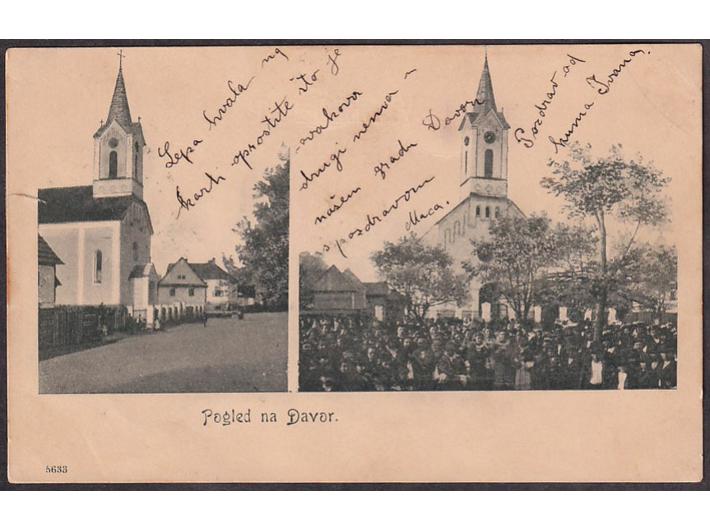 Lepa hvala na
karti oprostite što je
ovakova
drugi nema u
našem gradu Davoru
s pozdravom
Maca.
Pozdrav od
kuma Ivana.
Pogled na Davor.
5633